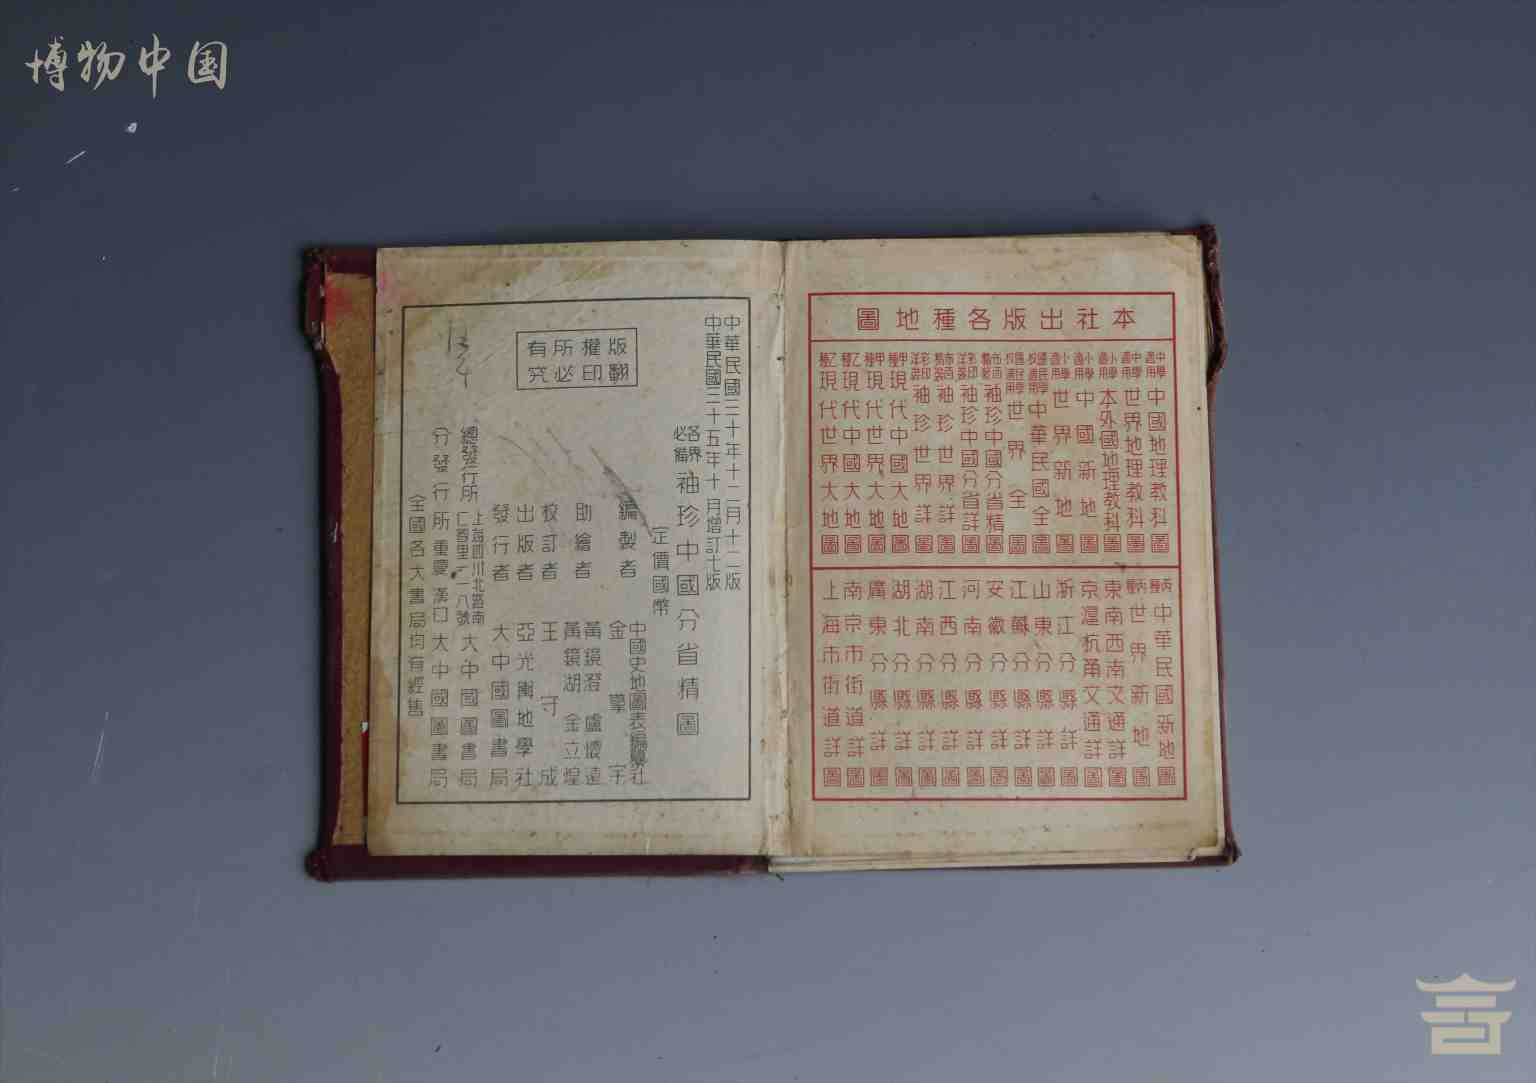 博物中国
本社出版各種地圖
中學適用中國地理教科圖
中學適用世界地理教科圖
小學適用本外國地理教科圖
小學適用中國新地圖
小學適用世界新地圖
國民學校適用中華民國全圖
國民學校適用世界全圖
布面精裝袖珍中國分省精圖
彩印洋裝袖珍中國分省詳圖
布面精裝袖珍世界詳圖
彩印洋裝袖珍世界詳圖
甲種現代中國大地圖
甲種現代世界大地圖
乙種現代中國大地圖
乙種現代世界大地圖
丙種中華民國新地圖
丙種世界新地圖
東南西南交通詳圖
京滬杭甬交通詳圖
浙江分縣詳圖
山東分縣詳圖
江蘇分縣詳圖
安徽分縣詳圖
河南分縣詳圖
江西分縣詳圖
湖南分縣詳圖
湖北分縣詳圖
廣東分縣詳圖
南京市街道詳圖
上海市街道詳圖
中華民國三十年十二月十二版
中華民國三十五年十月增訂七版
各界必備袖珍中國分省精圖
定價國幣
編製者 中國史地圖表編纂社
金擎宇
助繪者 黃鏡澄 盧懷遠
黃鏡湖 金立煌
校訂者 王守成
出版者 亞光輿地學社
發行者 大中國圖書局
總發行所 上海四川北路南仁智里一一八號 大中國圖書局
分發行所 重慶漢口大中國圖書局
全國各大書局均有經售
版權所有
翻印必究